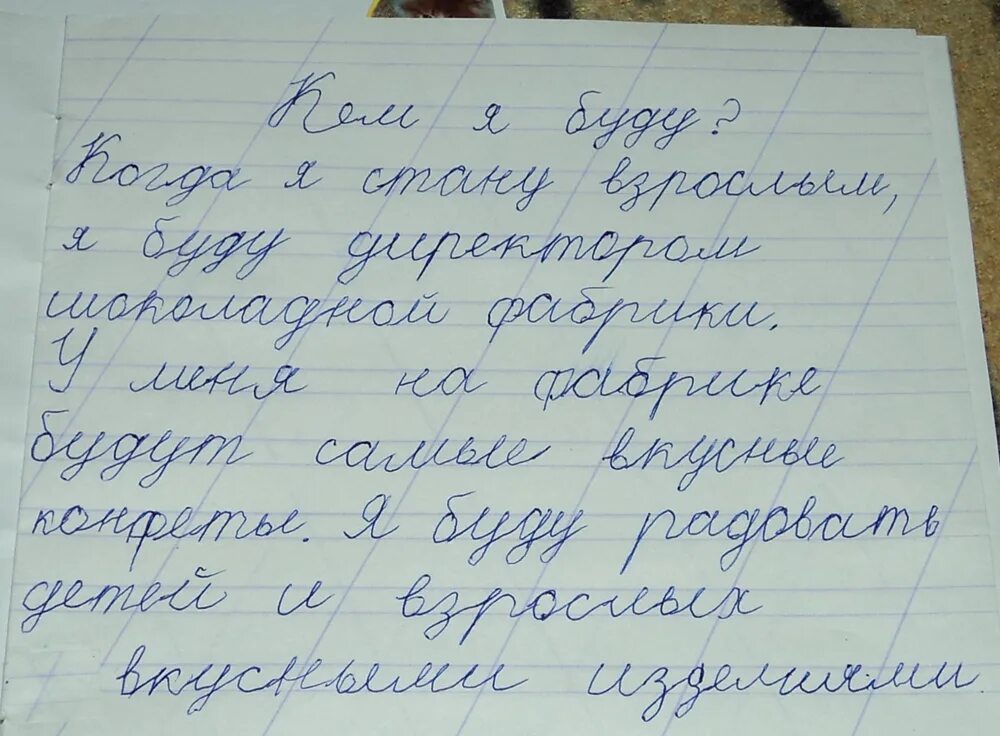 Кем я буду?
Когда я стану взрослым,
я буду директором
шоколадной фабрики.
У меня на фабрике
будут самые вкусные
конфеты. Я буду радовать
детей и взрослых
вкусными изделиями.